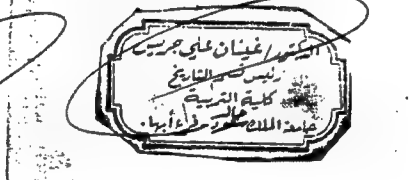 الدكتور/غيثان علي جريس
رئيس قسم التاريخ
كلية التربية
خالد
جامعة الملك سعود فرع أبها.